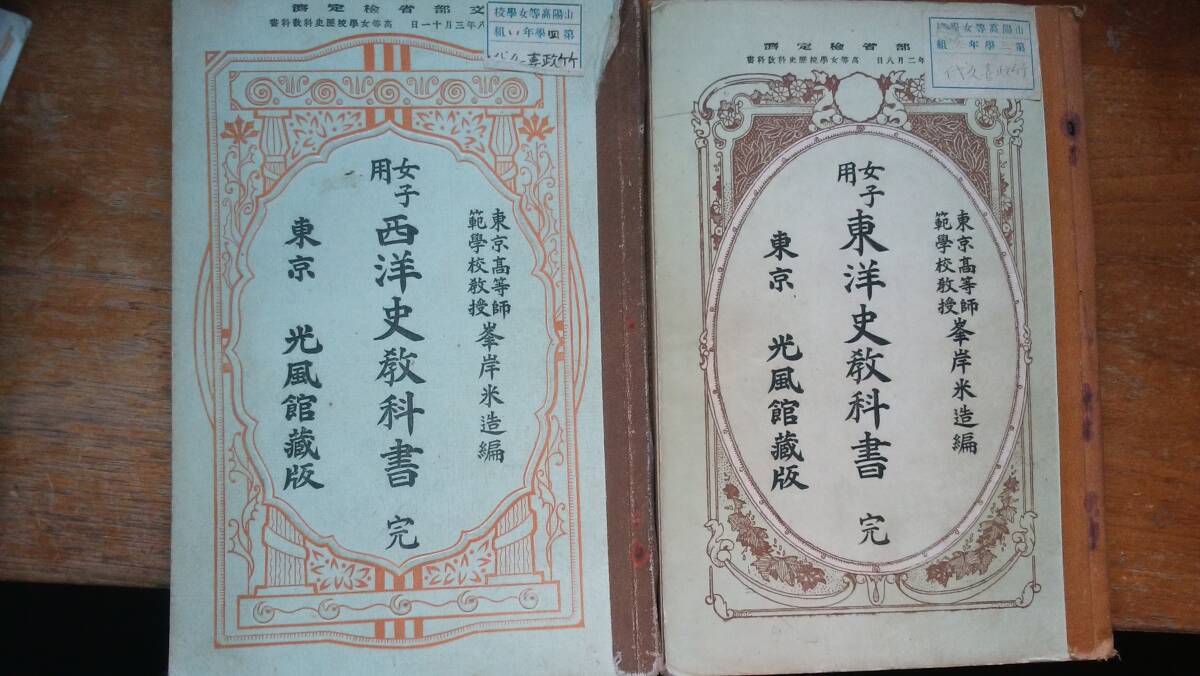 文部省檢定濟
八年三月十一日 高等女學校歷史科教科書
山陽高等女學校
第四學年い組
竹政喜久
東京高等師
範學校教授
峯岸米造編
女子
用
西洋史教科書 完
東京 光風館藏版
部省檢定濟
年二月八日 高等女學校歷史科教科書
山陽高等女學校
第三學年 組
竹政喜久代
東京高等師
範學校教授
峯岸米造編
女子
用
東洋史教科書 完
東京 光風館藏版